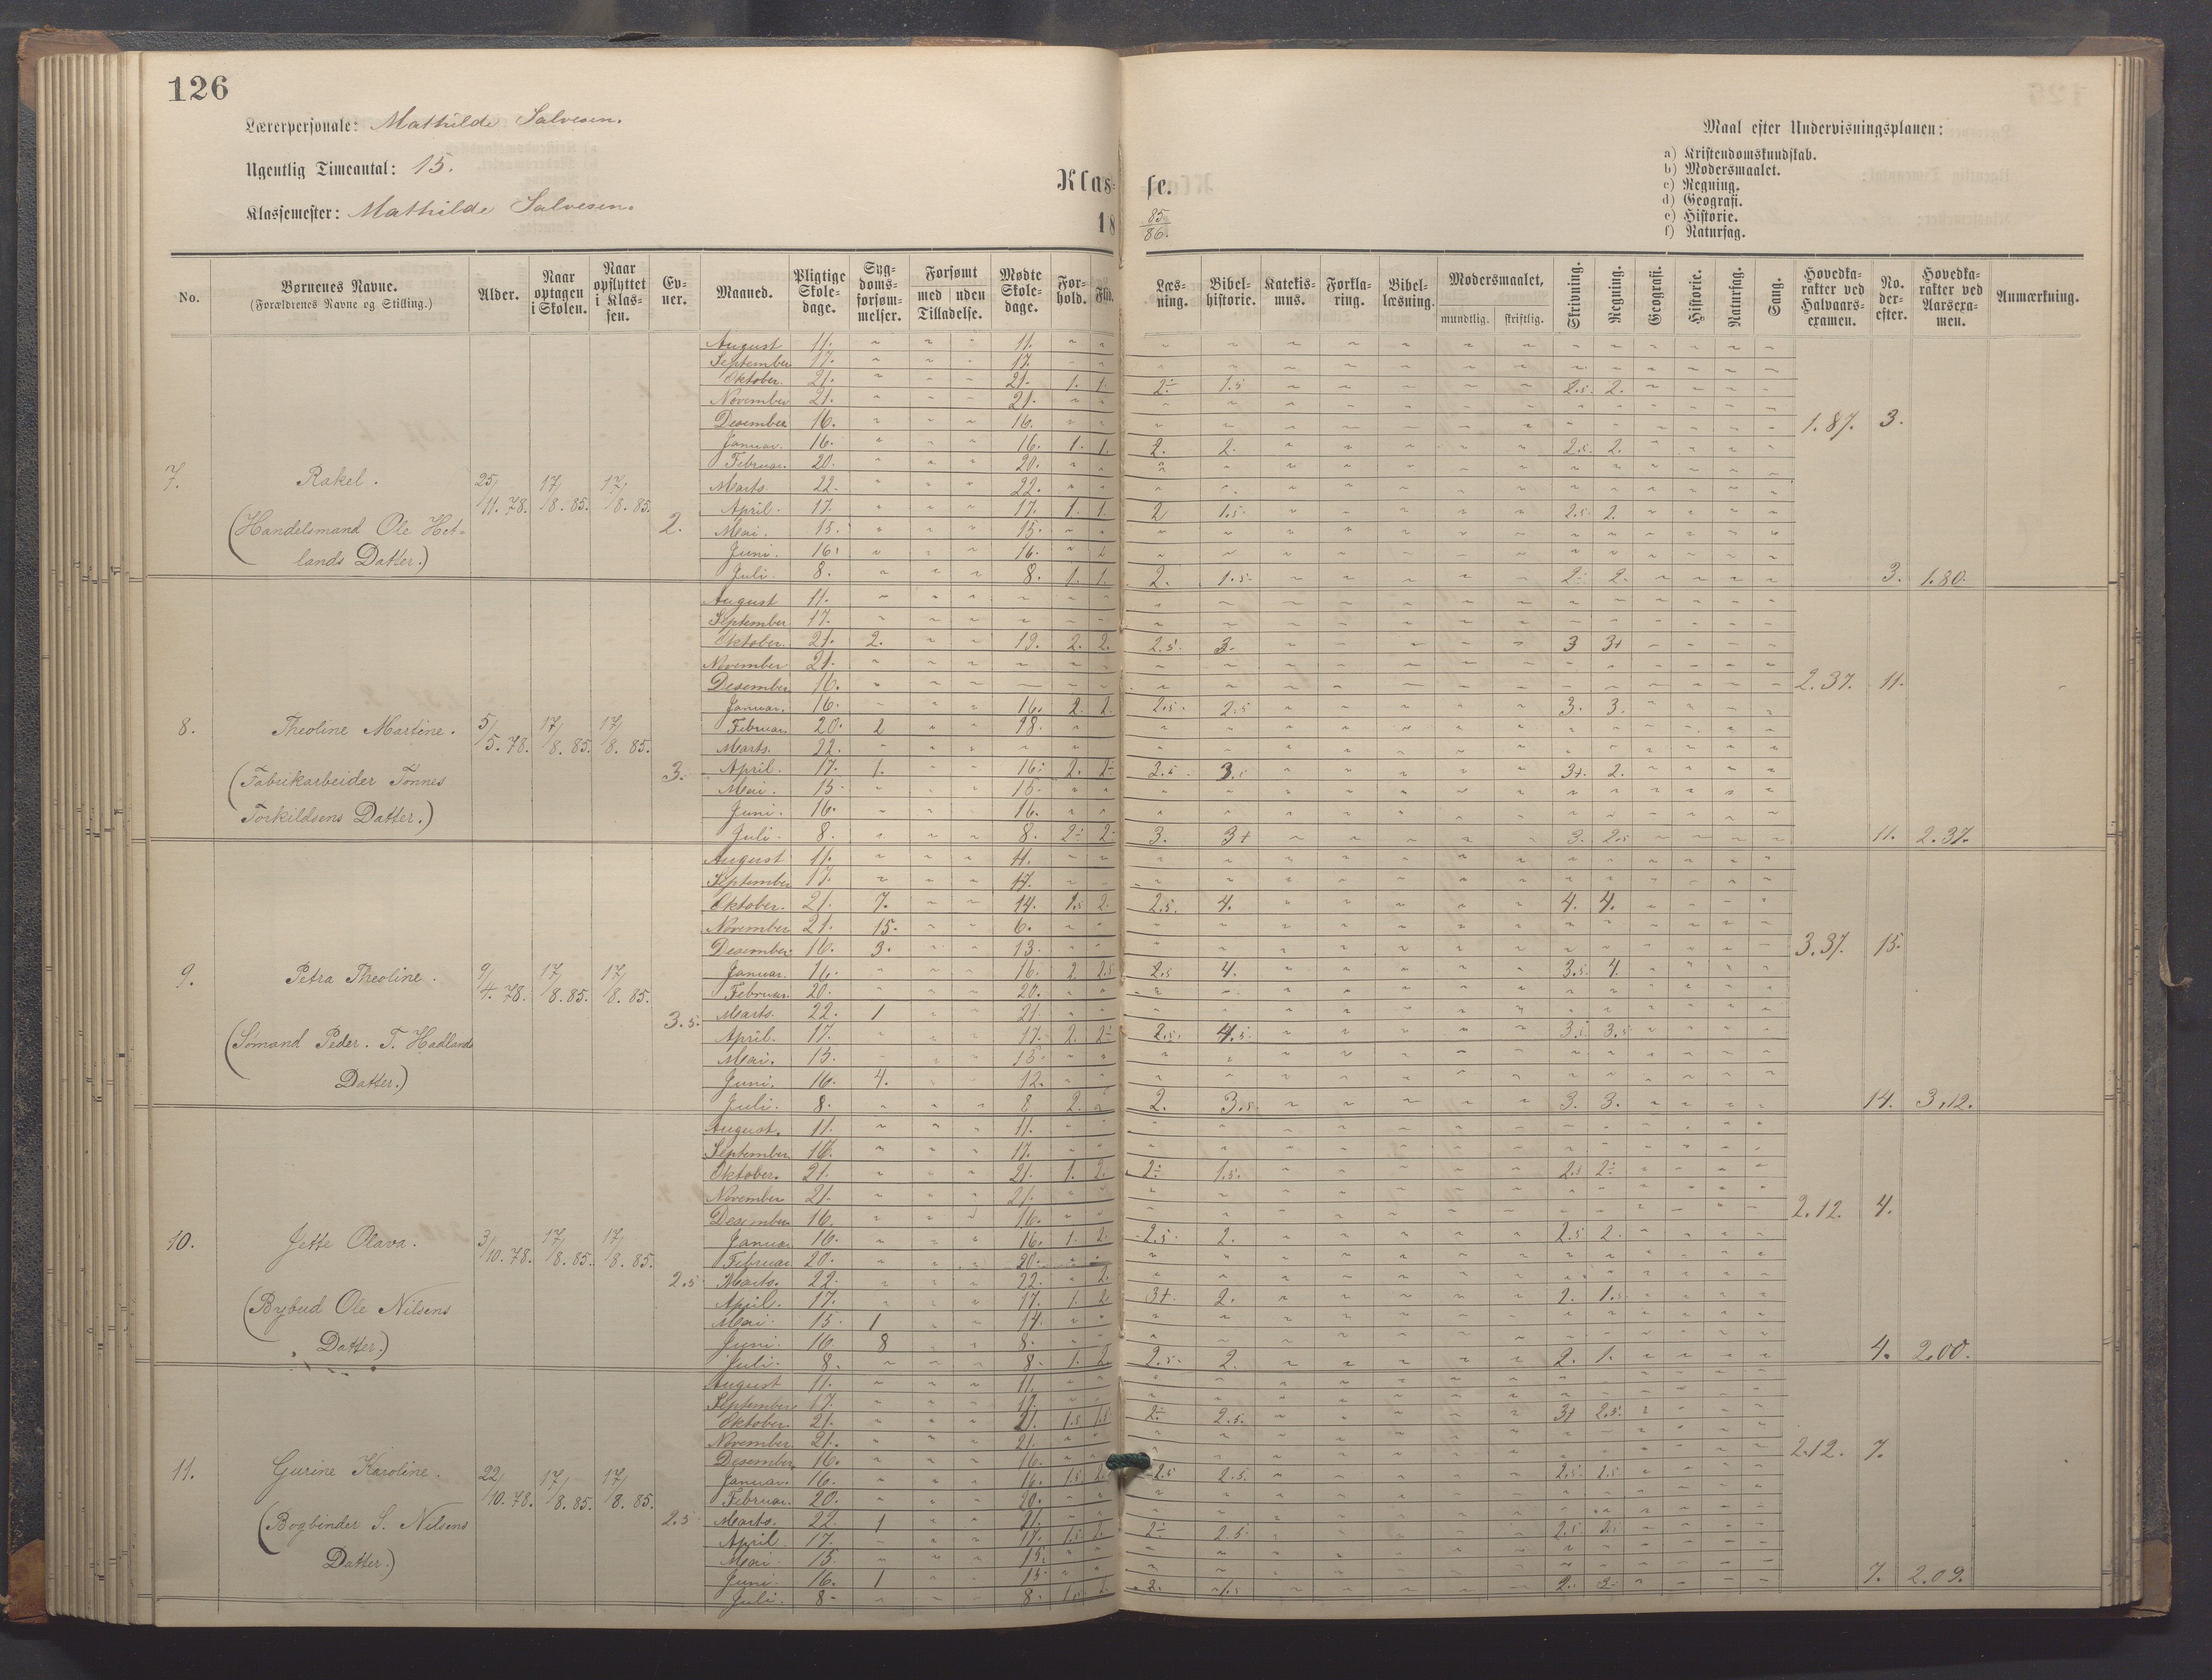 126
Lærerpersonale: Mathilde Salvesen.
Ugentlig Timeantal: 15.
Klassemester: Mathilde Salvesen.
Klas- se.
18 85/86.
Maal efter Undervisningsplanen:
a) Kristendomskundskab.
b) Modersmaalet.
c) Regning.
d) Geografi.
e) Historie.
f) Naturfag.
No. Børnenes Navne. (Forældrenes Navne og Stilling.) Alder. Naar optagen i Skolen. Naar opflyttet i Klassen. Evner. Maaned. Pligtige Skoledage. Sygdomsforsømmelser. Forsømt med uden Tilladelse. Mødte Skoledage. Forhold. Flid. Læsning. Bibelhistorie. Katekismus. Forklaring. Bibellæsning. Modersmaalet, mundtlig. skriftlig. Skrivning. Regning. Geografi. Historie. Naturfag. Sang. Hovedkarakter ved Halvaarsexamen. No. derefter. Hovedkarakter ved Aarsexamen. Anmærkning.
August 11. 11.
September 17. 17.
Oktober. 21. 21. 1. 1. 2÷ 1.5 2.5. 2.
November 21. 21.
Desember 16. 16. 1.87. 3.
Januar. 16. 16. 1. 1. 2. 2. 2.5. 2.
Februar. 20. 20.
7. Rakel. 25/11. 78. 17/8. 85. 17/8. 85. 2.
Marts. 22. 22.
April. 17. 17. 1. 1. 2 1.5. 2.5. 2.
(Handelsmand Ole Het-
Mai. 15. 15.
Juni. 16. 16.
lands Datter.)
Juli. 8. 8. 1. 1. 2. 1.5. 2÷ 2. 3. 1.80.
August 11.
September 17.
Oktober. 21. 2. 19. 2. 2. 2.5. 3. 3 3+
November 21.
Desember 16. 2.37. 11.
Januar. 16. 16. 2. 2. 2.5. 2.5 3. 3.
8. Theoline Martine. 5/5. 78. 17/8. 85. 17/8. 85. 3.
Februar 20. 2 18.
Marts. 22.
April. 17. 1. 16. 2. 2÷ 2.5. 3. 3+. 2.
(Fabrikarbeider Tønnes
Mai. 15. 15.
Juni. 16. 16.
Torkildsens Datter.)
Juli. 8. 8. 2÷ 2. 3. 3+ 3. 2.5 11. 2.37.
August 11. 11.
September 17. 17.
Oktober. 21. 7. 14. 1.5 2. 2.5. 4. 4. 4.
November 21. 15. 6.
Desember 16. 3. 13. 3.37. 15.
Januar. 16. 16. 2. 2.5 2.5 4. 3.5. 4.
9. Petra Theoline. 9/4. 78. 17/8. 85. 17/8. 85. 3.5.
Februar. 20. 20.
Marts. 22. 1 21.
April. 17. 17. 2. 2÷ 2.5. 4.5. 3.5 3.5
(Sømand Peder. T. Hadlands
Mai. 15. 15.
Juni. 16. 4. 12.
Datter.)
Juli. 8. 8 2. 2. 3.5. 3. 3. 14. 3.12.
August. 11. 11.
September 17.
Oktober. 21. 21. 1. 2. 2÷ 1.5. 2.5 2÷
November 21. 21.
Desember 16. 16. 2.12. 4.
Januar 16. 16. 1. 2. 2.5. 2. 2.5 2.
10. Jette Olava. 3/10. 78. 17/8. 85. 17/8. 85. 2.5
Februar 20. 20.
Marts. 22. 22. 2.
April. 17. 17. 1. 2 3+. 2. 2. 1.5
(Bybud Ole Nilsens
Mai. 15. 1 14.
Juni. 16. 8 8.
Datter.)
Juli. 8. 8. 1. 2. 2.5. 2. 2. 1. 4. 2.00.
August 11. 11.
September 17. 17.
Oktober. 21. 21. 1.5 1.5 2÷ 2.5. 3+ 2.5.
November 21. 21.
Desember 16. 16. 2.12. 7.
Januar. 16. 16. 1.5 2. 2.5 2.5. 2.5. 2.5
11. Gurine Karoline. 22/10. 78. 17/8. 85. 17/8. 85. 2.5
Februar. 20. 20.
Marts. 22. 1 21.
April 17. 17. 1.5 2. 2÷ 2.5. 2.5
(Bogbinder S. Nilsens
Mai 15. 15.
Juni. 16. 1 15.
Datter.)
Juli. 8. 8. 2. 2. 7. 2.09.